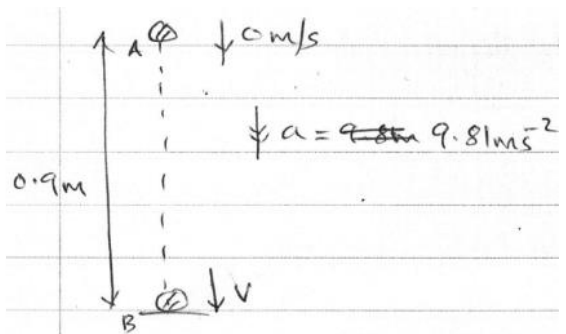 A ↓ 0 m/s
a = ~~9.8m~~ 9.81ms⁻²
0.9m
B ↓ V